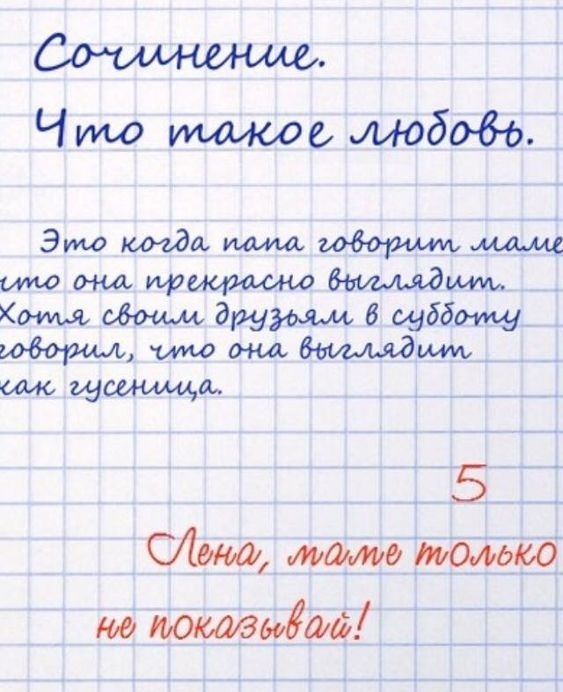 Сочинение.
Что такое любовь.
Это когда папа говорит маме
что она прекрасно выглядит.
Хотя своим друзьям в субботу
говорил, что она выглядит
как гусеница.
5
Лена, маме только
не показывай!